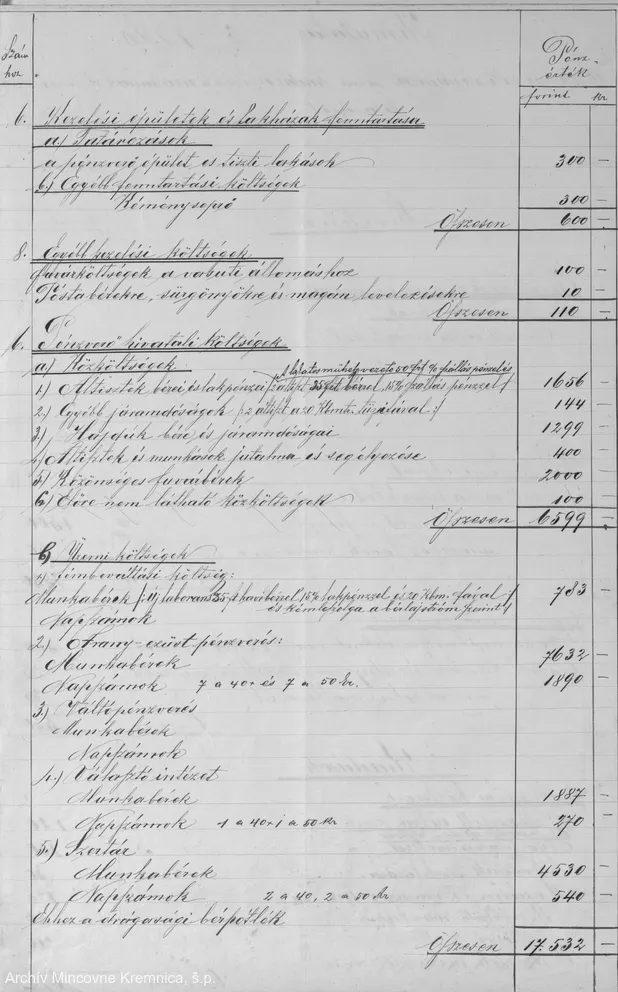 Szám hoz
Pénz-érték
forint kr
6. Kezelési épületek és Lakházak fenntartása
a) Tatarozások
a pénzverő épület es tiszti lakások 300 –
b) Egyébb fenntartási költségek
Kéményseprő 300 –
Összesen 600 –
8. Egyébb kezelési költségek.
Fuvarköltségek a vasuti állomáshoz 100 –
Póstabérekre, sürgönyökre és magán levelezésekre 10 –
Összesen 110 –
Pénzverő hivatali költségek
a) Közköltségek.
1) Altisztek bérei és lakpénzei 15% pótlás pénzzel 1656 –
2.) Egyébb járandóságok 144 –
3.) Hajdúk bére és járandóságai 1299 –
4) Altisztek és munkások jutalma es segélyezése 400 –
5) Közönséges fuvarbérek 2000 –
6) Előre nem látható közköltségek 100 –
Összesen 6599 –
b) Üzemi költségek
1) fémbeváltási költség:
Munkabérek 35 f havibérrel 15% lakpénzzel és 20 Kbm. fával 783 –
a bérlajstrom szerint
Napszámok
2.) Arany-ezüst pénzverés:
Munkabérek 7632 –
Napszámok 7 a 40 + és 7 a 50 kr. 1890 –
3) Váltópénzverés
Munkabérek
Napszámok
4.) Választó intézet
Munkabérek 1887 –
Napszámok 1 a 40 + 1 a 50 kr 270 –
5.) Szertár
Munkabérek 4530 –
Napszámok 2 a 40, 2 a 50 kr 540 –
Ehhez a drágasági bérpótlék
Összesen 17.532 –
Archív Mincovne Kremnica, š.p.